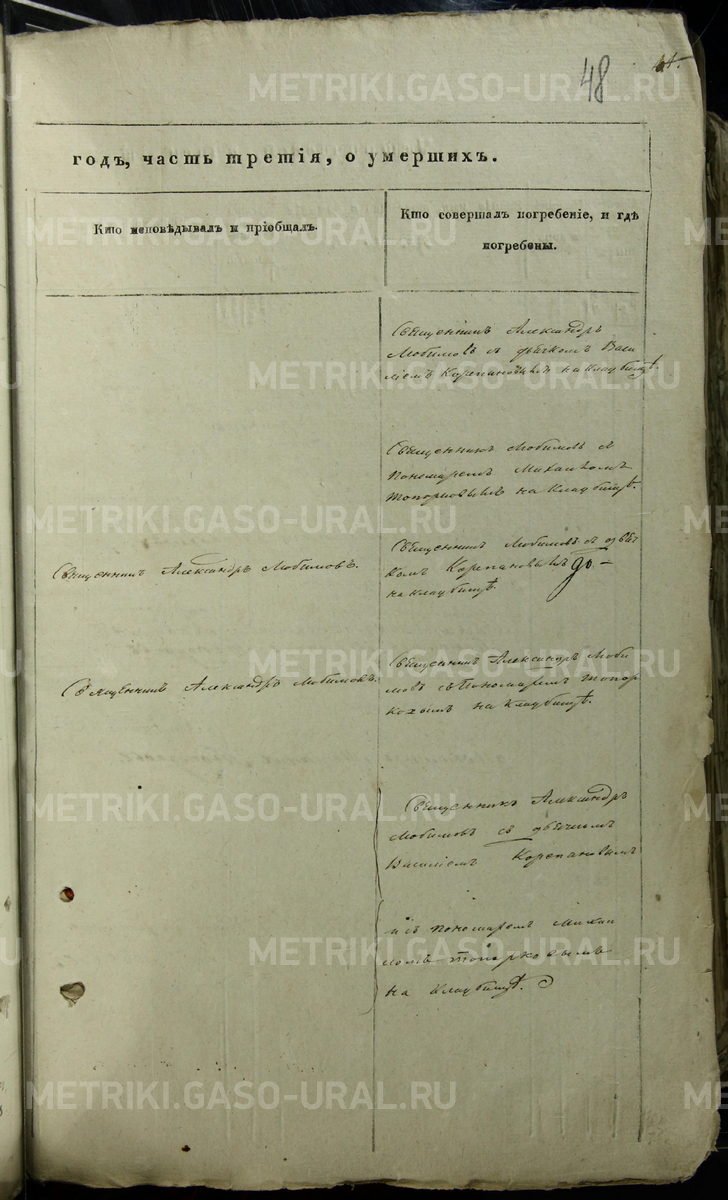 48
годъ, часть третія, о умершихъ.
Кто исповѣдывалъ и пріобщалъ.
Кто совершалъ погребеніе, и гдѣ
погребены.
Священникъ Александръ
Любимовъ съ дьячкомъ Васи
ліемъ Корепановымъ на кладбищѣ.
Священникъ Любимовъ съ
пономаремъ Михаиломъ
Топорковымъ на кладбищѣ.
Священникъ Александръ Любимовъ.
Священникъ Любимовъ съ дьяч
комъ Корепановымъ
на кладбищѣ.
Священникъ Александръ Любимовъ.
Священникъ Александръ Люби
мовъ съ пономаремъ Топор
ковымъ на кладбищѣ.
Священникъ Александръ
Любимовъ съ дьячкомъ
Василіемъ Корепановымъ
и съ пономаремъ Михаи
ломъ Топорковымъ
на кладбищѣ.
METRIKI.GASO-URAL.RU